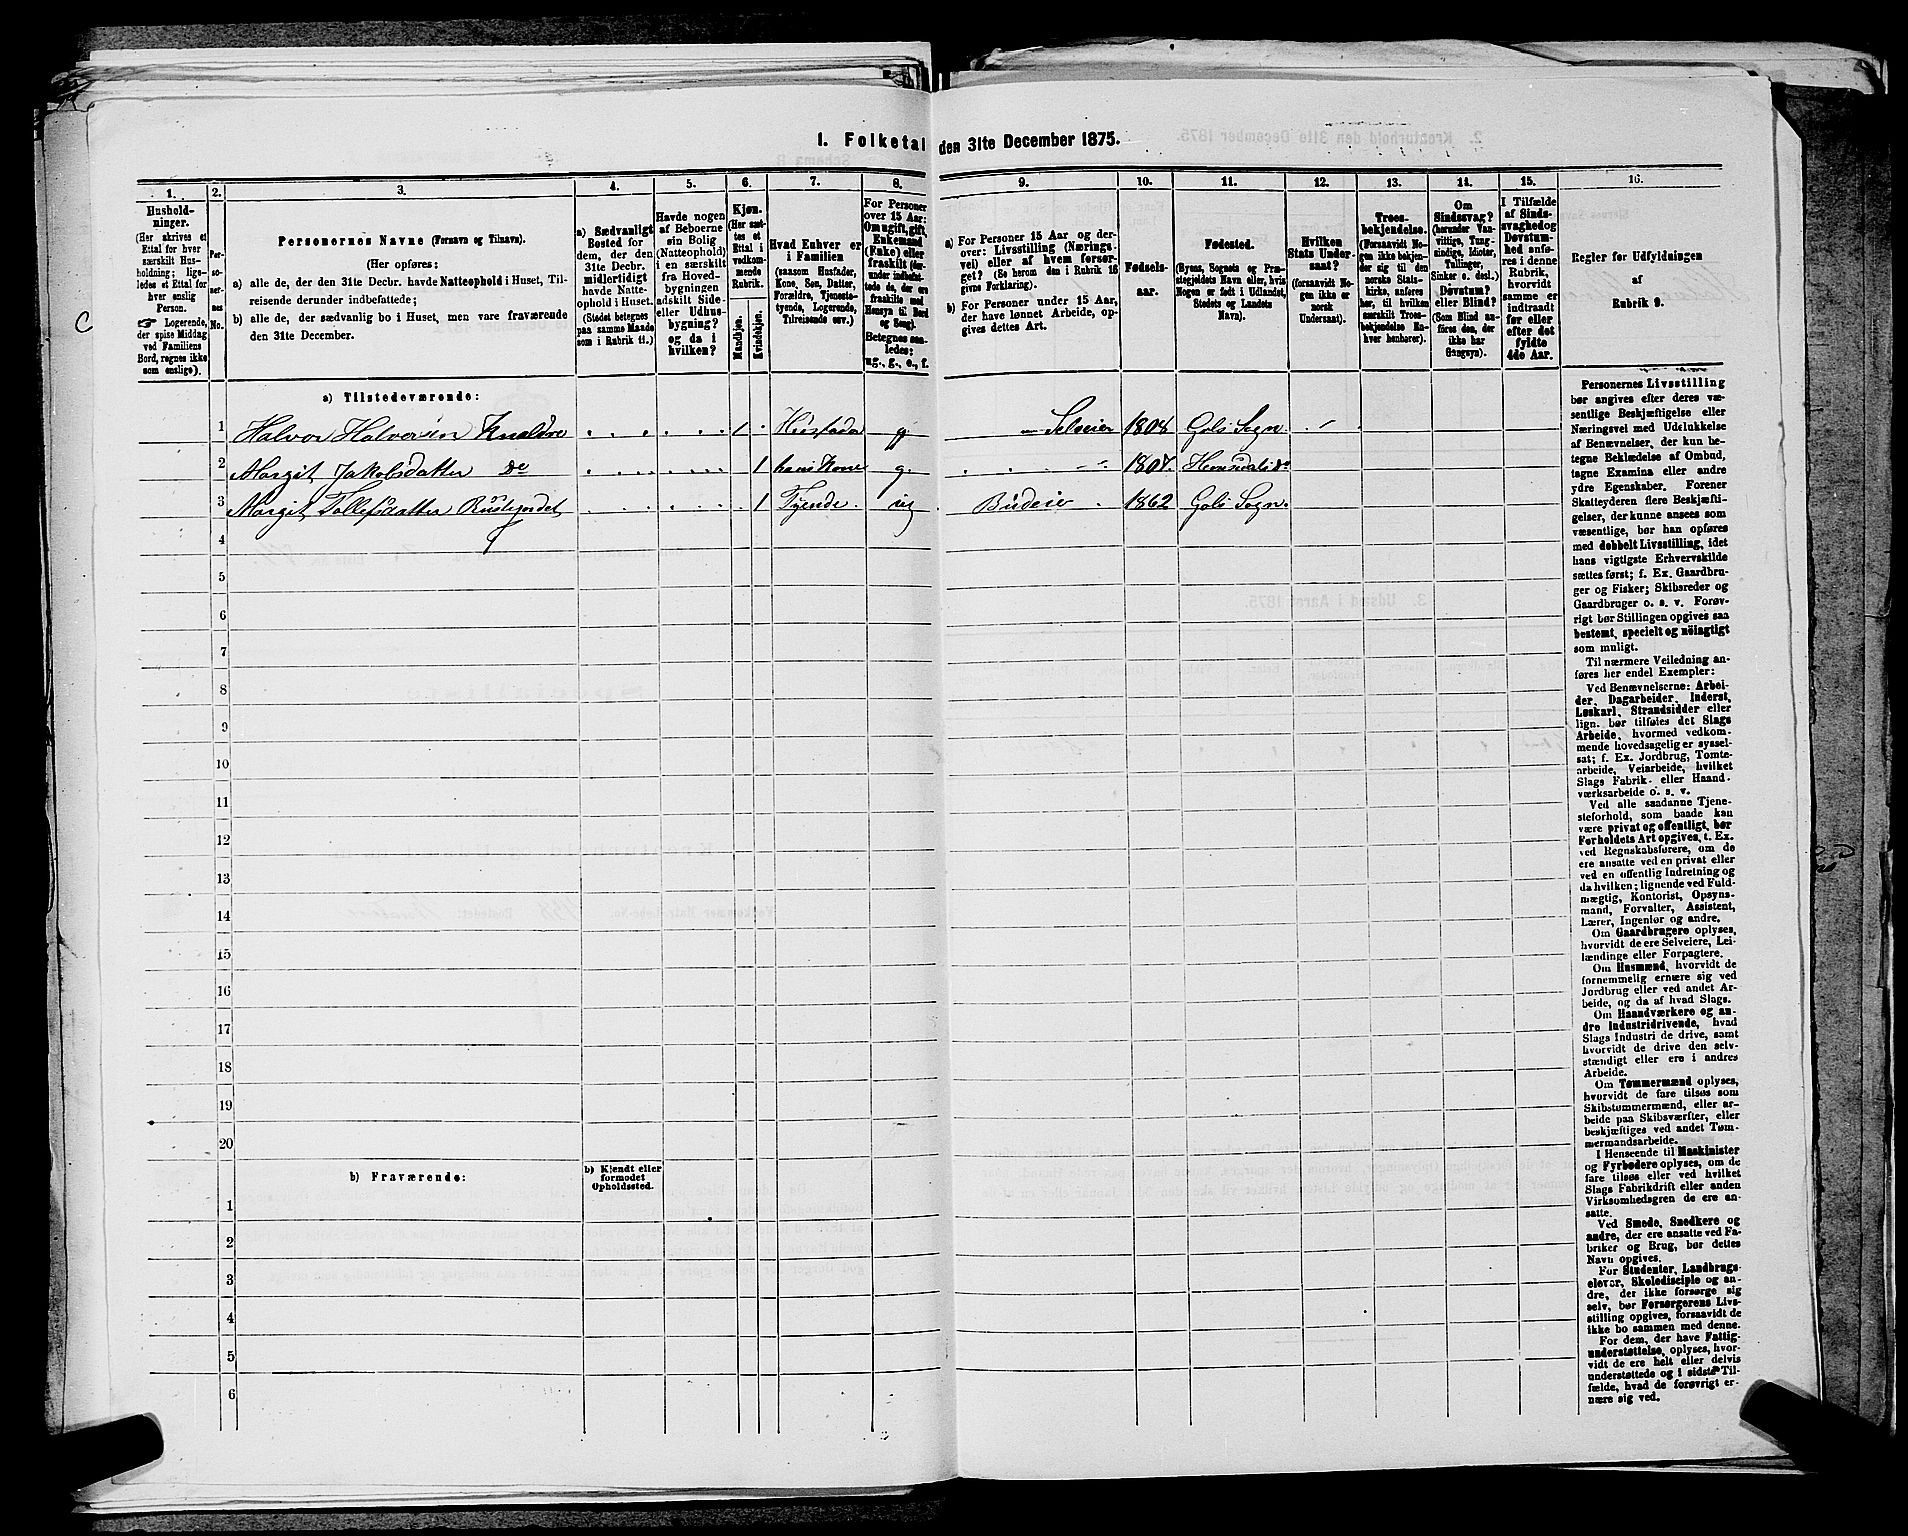 1. Folketal den 31te December 1875.
1.
2.
3.
4.
5.
6.
7.
8.
9.
10.
11.
12.
13.
14.
15.
16.
Hushold-
ninger.
(Her skrives et
Ettal for hver
særskilt Hus-
holdning; lige-
ledes et Ettal for
hver enslig
Person.
☞ Logerende,
der spise Middag
ved Familiens
Bord, regnes ikke
som enslige).
Per-
so-
ner-
nes
No.
Personernes Navne (Fornavn og Tilnavn).
(Her opføres;
a) alle de, der den 31te Decbr. havde Natteophold i Huset, Til-
reisende derunder indbefattede;
b) alle de, der sædvanlig bo i Huset, men vare fraværende
den 31te December.
a) Sædvanligt
Bosted for
dem, der den
31te Decbr.
midlertidigt
havde Natte-
ophold i Huset.
(Stedet betegnes
paa samme Maade
som i Rubrik 11.)
Havde nogen
af Beboerne
sin Bolig
(Natteophold)
i en særskilt
fra Hoved-
bygningen
adskilt Side-
eller Udhus-
bygning?
og da i
hvilken?
Kjøn.
(Her sæt-
tes et
Ettal i
vedkom-
mende
Rubrik.
Mandkjøn.
Kvindekjøn.
Hvad Enhver er
i Familien
(saasom Husfader,
Kone, Søn, Datter,
Forældre, Tjeneste-
tyende, Logerende,
Tilreisende osv.)
For Personer
over 15 Aar:
Om ugift, gift,
Enkemand
(Enke) eller
fraskilt (der-
under indbefat-
tede de, der ere
fraskilte med
Hensyn til Bord
og Seng).
Betegnes saa-
ledes:
ug., g., e., f.
a) For Personer 15 Aar og der-
over: Livsstilling (Nærings-
vei) eller af hvem forsør-
get? (Se herom den i Rubrik 16
givne Forklaring.)
b) For Personer under 15 Aar,
der have lønnet Arbeide, op-
gives dettes Art.
Fødsels-
aar.
Fødested.
(Byens, Sognets og Præ-
stegjeldets Navn eller, hvis
Nogen er født i Udlandet,
Stedets og Landets
Navn).
Hvilken
Stats Under-
saat?
(forsaavidt No-
gen ikke er
norsk
Undersaat).
Troes-
bekjendelse.
(Forsaavidt No-
gen ikke bekjen-
der sig til den
norske Stats-
kirke, anføres
her, til hvilken
særskilt Troes-
bekjendelse En-
hver henhører).
Om
Sindssvag?
(herunder Van-
vittige, Tung-
sindige, Idioter,
Tullinger,
Sinker o. desl.)
Døvstum?
eller Blind?
(Som Blind an-
føres den, der
ikke har
Gangsyn).
I Tilfælde
af Sinds-
svaghed og
Døvstum-
hed anfø-
res i denne
Rubrik,
hvorvidt
samme er
indtraadt
før eller
efter det
fyldte
4de Aar.
Regler for Udfyldningen
af
Rubrik 9.
C
a) Tilstedeværende:
1 Halvor Halversen Knaldre 1 Husfader g Selveier 1808 Gols Sogn
2 Margit Jakobsdatter do 1 hans Kone g. 1807. Hemsedals do
3 Margit Tollefsdatter Rustejordet 1 Tyende. ug Budeie 1862 Gols Sogn.
4
5
6
7
8
9
10
11
12
13
14
15
16
17
18
19
20
b) Fraværende:
b) Kjendt eller
formodet
Opholdssted.
1
2
3
4
5
6
Personernes Livsstilling
bør angives efter deres væ-
sentlige Beskjæftigelse eller
Næringsvei med Udelukkelse
af Benævnelser, der kun be-
tegne Bekledelse af Ombud,
tagne Examina eller andre
ydre Egenskaber. Forener
Skatteyderen flere Beskjæfti-
gelser, der kunne ansees som
væsentlige, bør han opføres
med dobbelt Livsstilling, idet
hans vigtigste Erhvervskilde
sættes først; f. Ex. Gaardbru-
ger og Fisker; Skibsreder og
Gaardbruger o. s. v. Forøv-
rigt bør Stillingen opgives saa
bestemt, specielt og nöiagtigt
som muligt.
Til nærmere Veiledning an-
føres her endel Exempler:
Ved Benævnelserne: Arbei-
der, Dagarbeider, Inderst,
Løskarl, Strandsidder eller
lign. bør tilføies det Slags
Arbeide, hvormed vedkom-
mende hovedsagelig er syssel-
sat; f. Ex. Jordbrug, Tomte-
arbeide, Veiarbeide, hvilket
Slags Fabrik- eller Haand-
værksarbeide o. s. v.
Ved alle saadanne Tjene-
steforhold, som baade kan
være privat og offentligt, bør
Forholdets Art opgives, t. Ex.
ved Regnskabsførere, om de
ere ansatte ved en privat eller
ved en offentlig Indretning og
da hvilken; lignende ved Fuld-
mægtig, Kontorist, Opsyns-
mand, Forvalter, Assistent,
Lærer, Ingeniør og andre.
Om Gaardbrugere oplyses,
hvorvidt de ere Selveiere, Lei-
lændinge eller Forpagtere.
Om Husmænd, hvorvidt de
fornemmelig ernære sig ved
Jordbrug eller ved andet Ar-
beide, og da af hvad Slags.
Om Haandværkere og an-
dre Industridrivende, hvad
Slags Industri de drive, samt
hvorvidt de drive den selv-
stændigt eller ere i andres
Arbeide.
Om Tømmermænd oplyses,
hvorvidt de fare tilsøs som
Skibstømmermænd, eller ar-
beide paa Skibsværfter, eller
beskjæftiges ved andet Tøm-
mermandsarbeide.
I Henseende til Maskinister
og Fyrbødere oplyses, om de
fare tilsøs eller ved hvilket
Slags Fabrikdrift eller anden
Virksomhedsgren de ere an-
satte.
Ved Smede, Snedkere og
andre, der ere ansatte ved Fa-
briker og Brug, bør dettes
Navn opgives.
For Studenter, Landbrugs-
elever, Skoledisciple og an-
dre, der ikke forsørge sig
selv, bør Forsørgerens Livs-
stilling opgives, forsaavidt de
ikke bo sammen med denne.
For dem, der have Fattig-
understøttelse, oplyses, hvor-
vidt de ere helt eller delvis
understøttede og i sidste Til-
fælde, hvad de forøvrigt er-
nære sig ved.